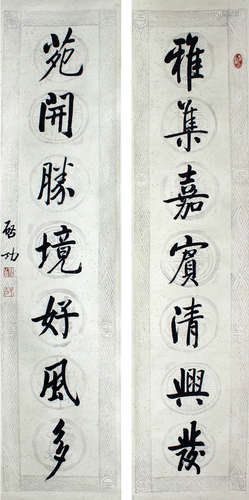 雅集嘉賓清興發
苑開勝境好風多
啟功